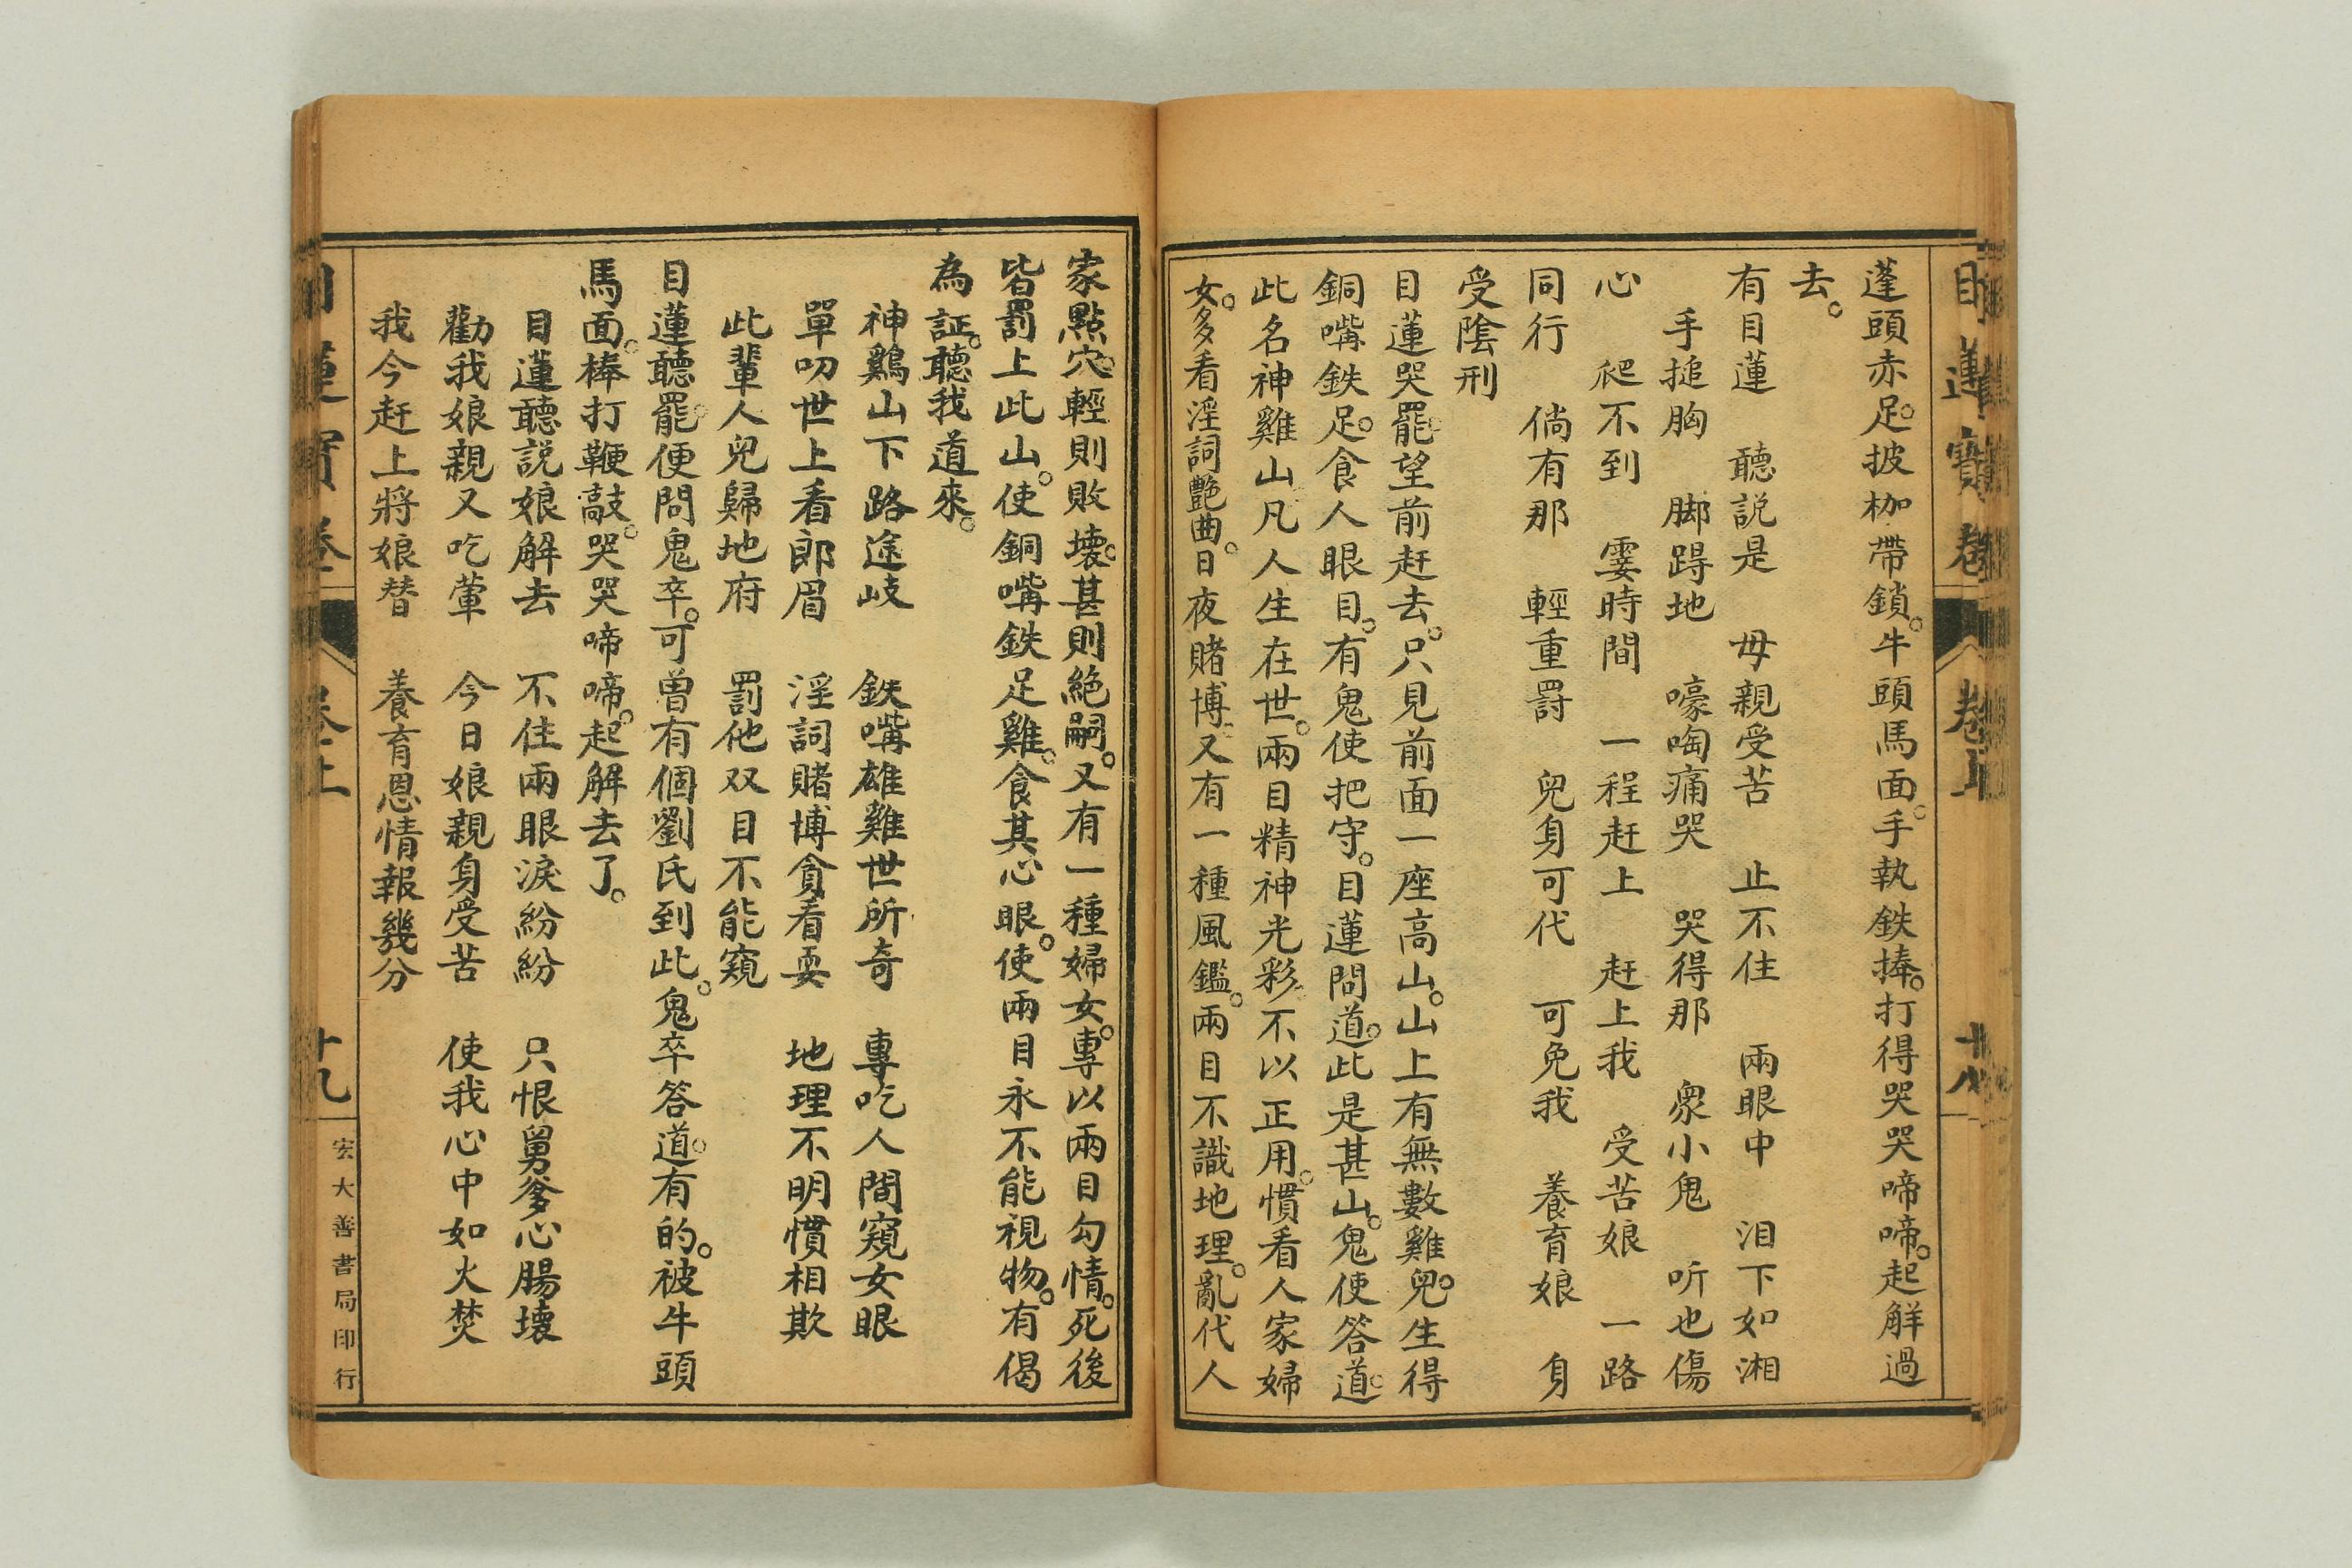 目蓮寶卷 卷上 十八
蓬頭赤足。披枷帶鎖。牛頭馬面。手執鉄捧。打得哭哭啼啼。起觧過
去。
有目蓮 聽説是 母親受苦 止不住 兩眼中 泪下如湘
手搥胸 脚踭地 嚎啕痛哭 哭得那 衆小鬼 听也傷
心 爬不到 霎時間 一程赶上 赶上我 受苦娘 一路
同行 倘有那 輕重罰 兒身可代 可免我 養育娘 身
受陰刑
目蓮哭罷。望前赶去。只見前面一座高山。山上有無數雞兒。生得
銅嘴鉄足。食人眼目。有鬼使把守。目蓮問道。此是甚山。鬼使答道。
此名神雞山凡人生在世。兩目精神光彩。不以正用。慣看人家婦
女。多看淫詞艷曲。日夜賭博。又有一種風鑑。兩目不識地理。亂代人
家點穴。輕則敗壞。甚則絶嗣。又有一種婦女。專以兩目勾情。死後
皆罰上此山。使銅嘴鉄足雞。食其心眼。使兩目永不能視物。有偈
為証。聽我道來。
神鷄山下路途岐 鉄嘴雄雞世所奇 專吃人間窺女眼
單叨世上看郎眉 淫詞賭博貪看耍 地理不明慣相欺
此輩人兒歸地府 罰他双目不能窺
目蓮聽罷。便問鬼卒。可曾有個劉氏到此。鬼卒答道。有的。被牛頭
馬面。棒打鞭敲。哭哭啼啼。起解去了。
目蓮聽説娘解去 不住兩眼淚紛紛 只恨舅爹心腸壞
勸我娘親又吃葷 今日娘親身受苦 使我心中如火焚
我今赶上將娘替 養育恩情報幾分
目蓮寶卷 卷上 十九 宏大善書局印行